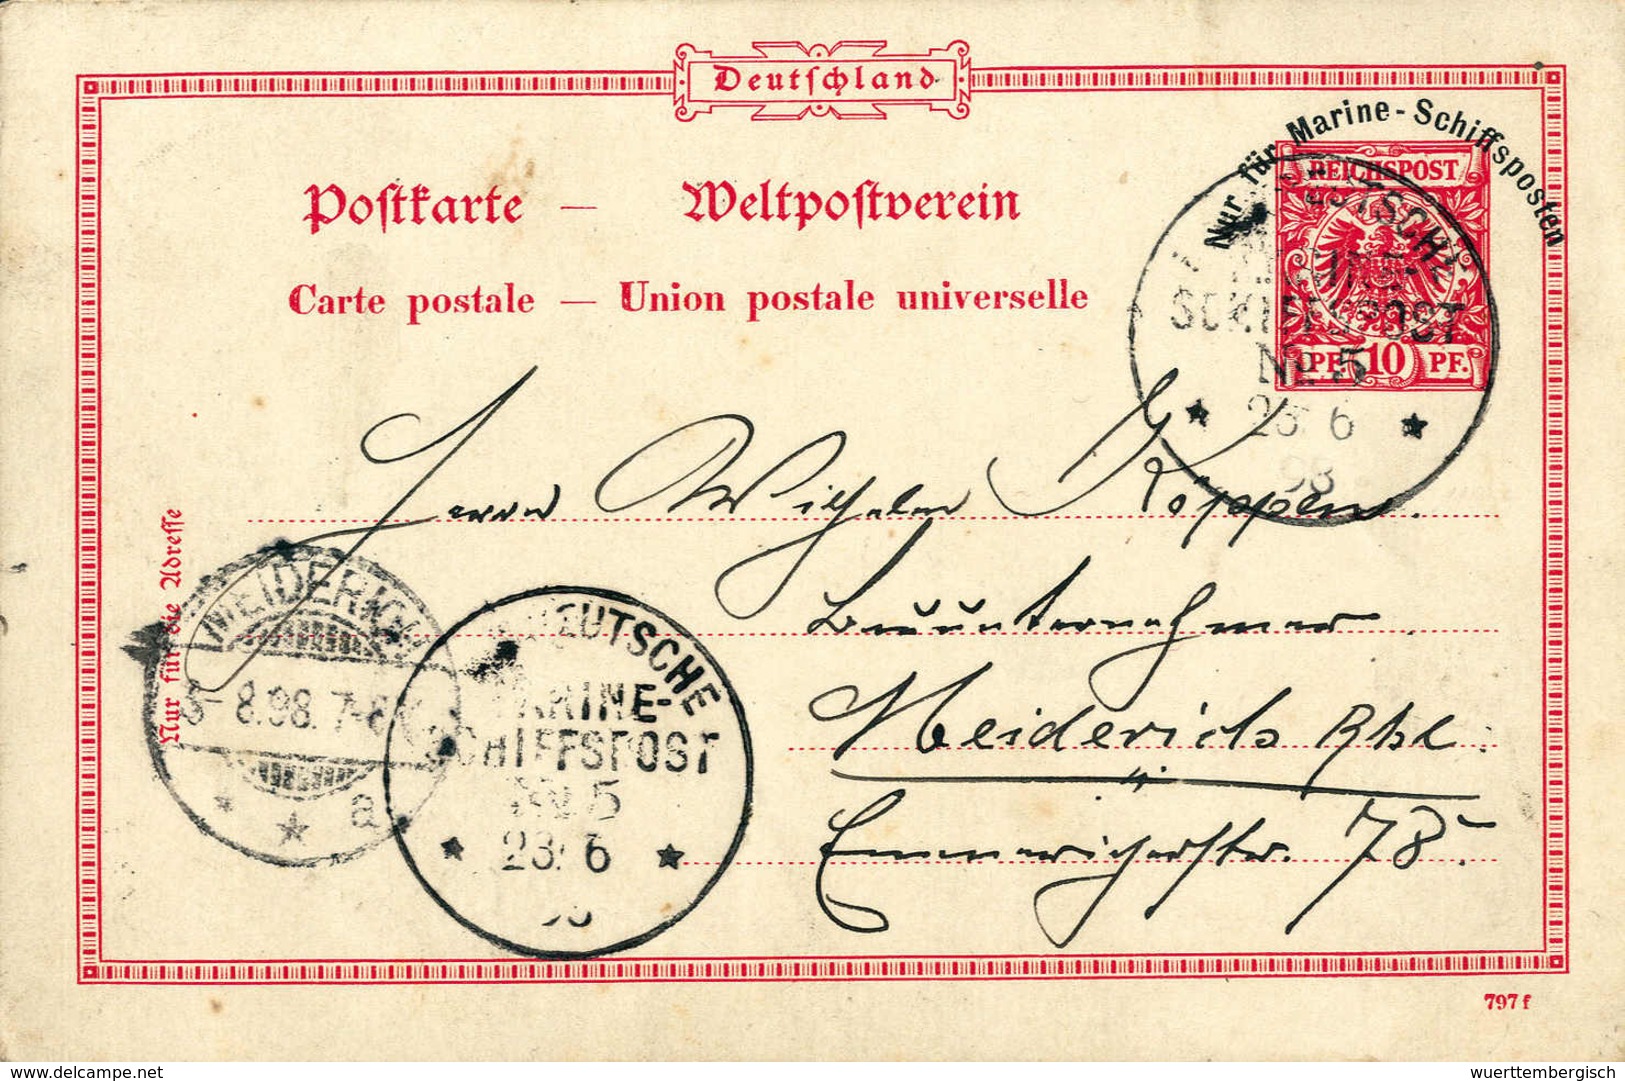 Deutschland
Nur für Marine-Schiffsposten
Postkarte — Weltpostverein
Carte postale — Union postale universelle
REICHSPOST
PF. 10 PF.
DEUTSCHE
MARINE-
SCHIFFSPOST
No 5
23/ 6
98
Herrn Wilhelm Köppen.
Bauunternehmer.
Meiderich Rhl.
Emmericherstr. 78
Nur für die Adresse
MEIDERICH
8.98. 7-8
a
DEUTSCHE
MARINE-
SCHIFFSPOST
No 5
23/ 6
797 f
delcampe.net
wuerttembergisch